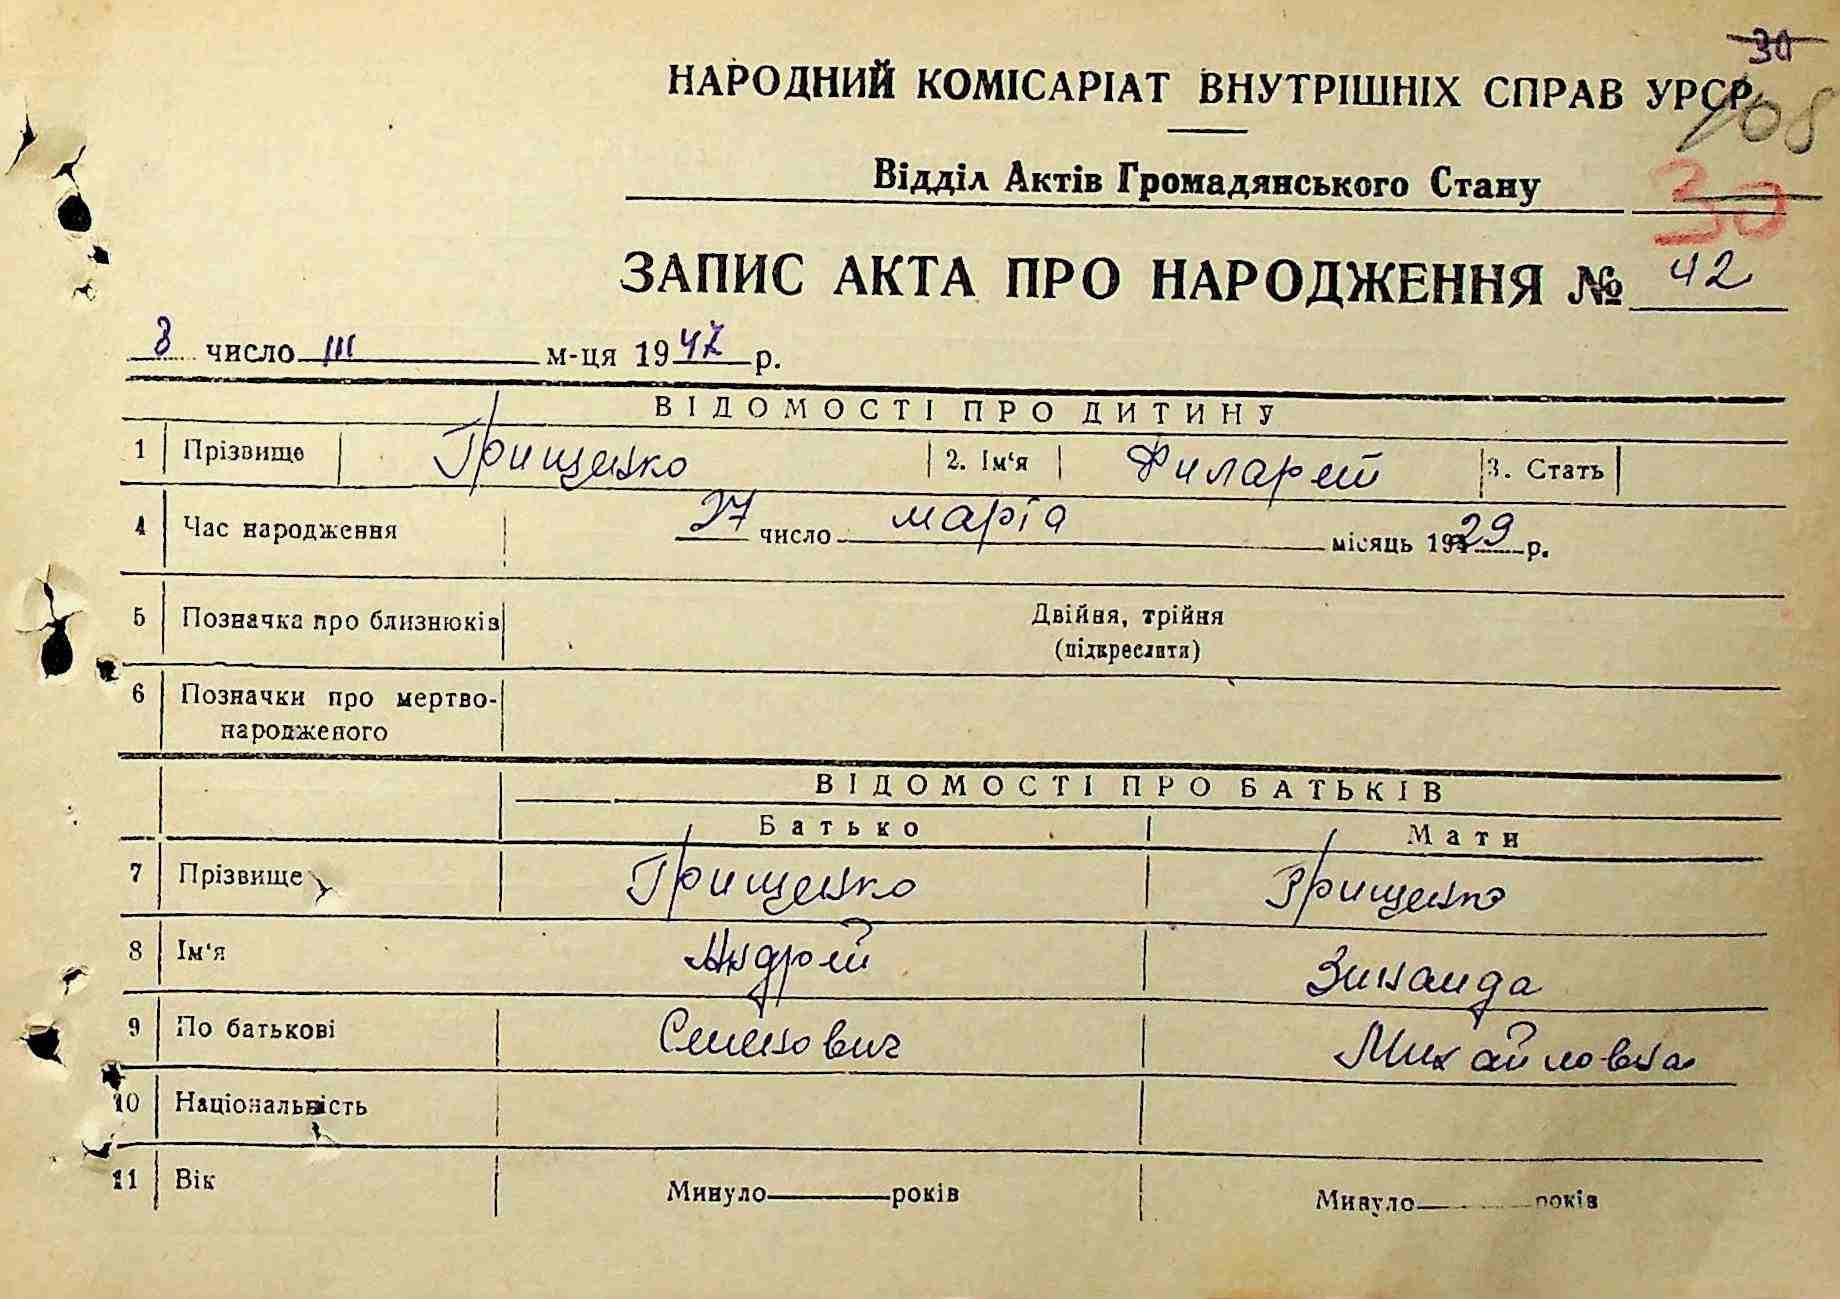 30
НАРОДНИЙ КОМІСАРІАТ ВНУТРІШНІХ СПРАВ УРСР
108
Відділ Актів Громадянського Стану
30
ЗАПИС АКТА ПРО НАРОДЖЕННЯ № 42
8 число III м-ця 1947 р.
ВІДОМОСТІ ПРО ДИТИНУ
1 Прізвище Грищенко 2. Ім'я Филарет 3. Стать
4 Час народження 27 число марта місяць 1929 р.
5 Позначка про близнюків Двійня, трійня
(підкреслити)
6 Позначки про мертво-
народженого
ВІДОМОСТІ ПРО БАТЬКІВ
Батько Мати
7 Прізвище Грищенко Грищенко
8 Ім'я Андрей Зинаида
9 По батькові Семенович Михайловна
10 Національність
11 Вік Минуло років Минуло років